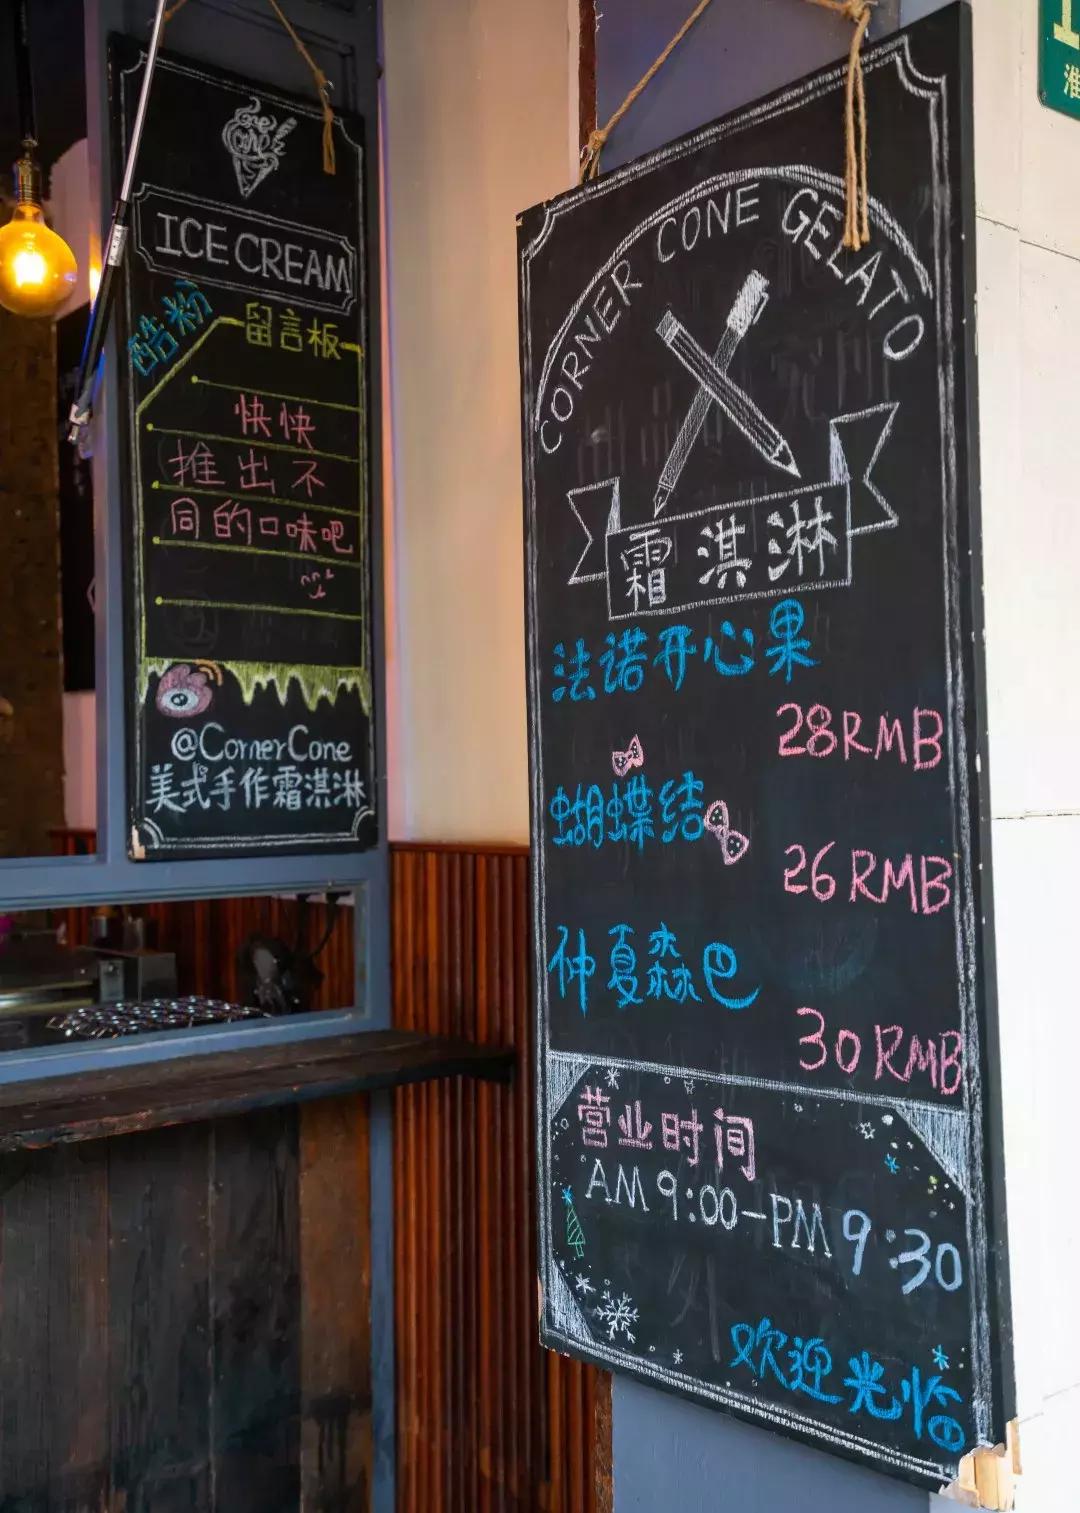 Cone
ICE CREAM
酷粉
留言板
快快
推出不
同的口味吧
@CornerCone
美式手作霜淇淋
CORNER CONE GELATO
霜淇淋
法诺开心果
28RMB
蝴蝶结
26RMB
仲夏森巴
30RMB
营业时间
AM 9:00-PM 9:30
欢迎光临
淮